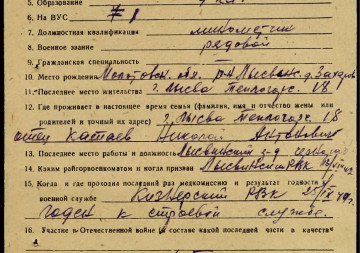 5. Образование
6. На ВУС
7. Должностная квалификация минометчик
8. Военное звание рядовой
9. Гражданская специальность
10. Место рождения Молотовск. обл. р-н Лысьвенс. д. Захаров
11. Последнее место жительства г. Лысьва Теплогорс. 18
12. Где проживает в настоящее время семья (фамилия, имя и отчество жены или
родителей и точный их адрес) г. Лысьва Теплогорс. 18
отец Катаев Николай Антонович
14. Последнее место работы и должность Лысьвинский з-д
14. Каким райгорвоенкоматом и когда призван Лысьвинский РВК
15. Когда и где проходил последний раз медкомиссию и результат годности к
военной службе Кизнерский РВК 25/IX
годен к строевой службе.
16. Участие в Отечественной войне в составе какой последней части в качестве